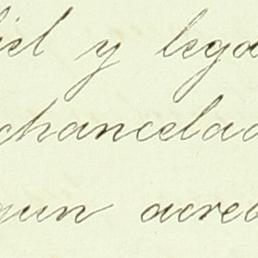 iel y lega
chancelad
gun acree